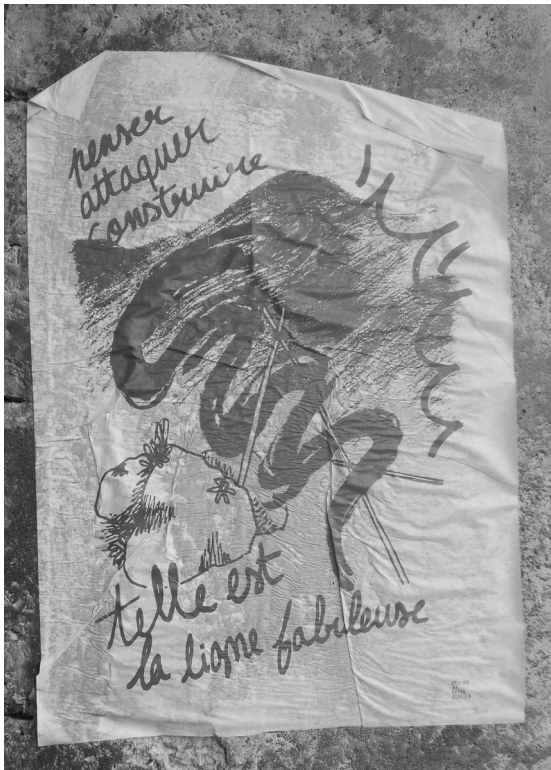 penser
attaquer
construire
telle est
la ligne fabuleuse